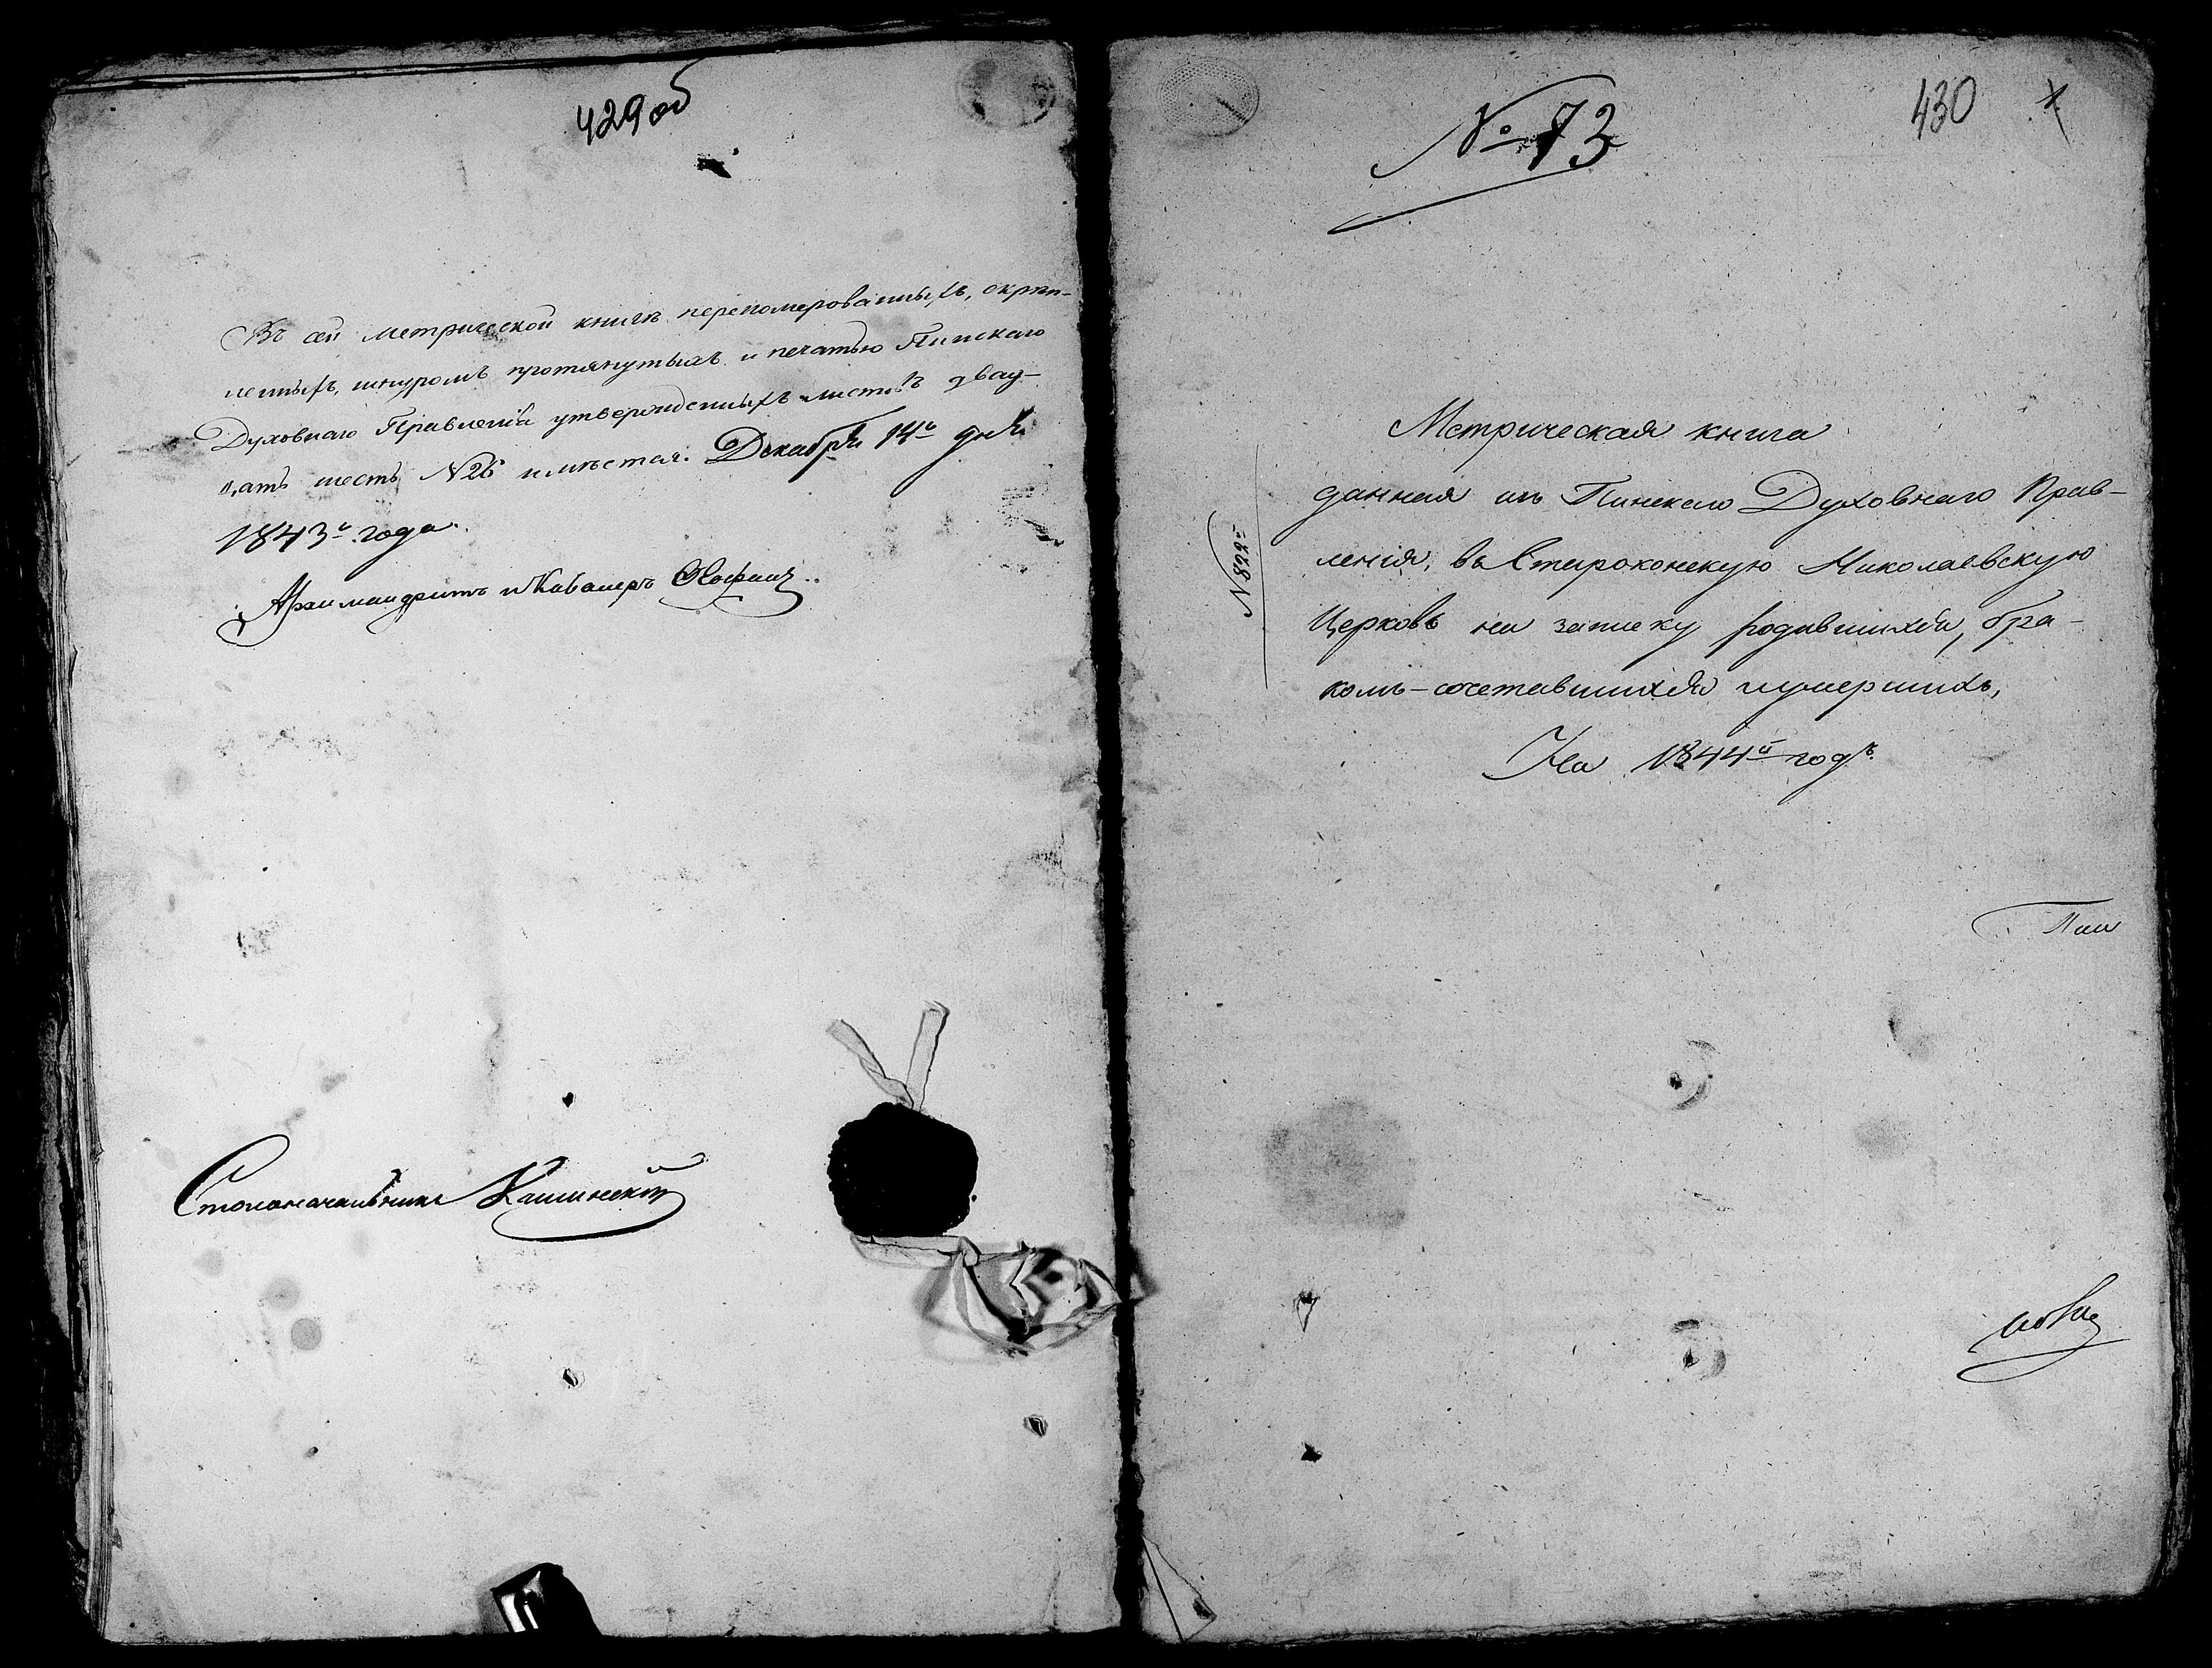 429об
Въ сей метрической книгѣ перепомерованныхъ, скрѣп-
ленныхъ, шнуромъ протянутыхъ и печатью Пинскаго
Духовнаго Правленія утвержденныхъ листовъ двад-
цать шесть №26 имѣется. Декабря 14го дня
1843го года.
Архимандритъ и Кавалеръ
Столоначальникъ
№ 73
430
1
Метрическая книга
данная изъ Пинскаго Духовнаго Прав-
ленія, въ Староконскую Николаевскую
Церковь на записку родившихся, бра-
комъ-сочетавшихся и умершихъ,
На 1844й годъ.
№ 828
Пин